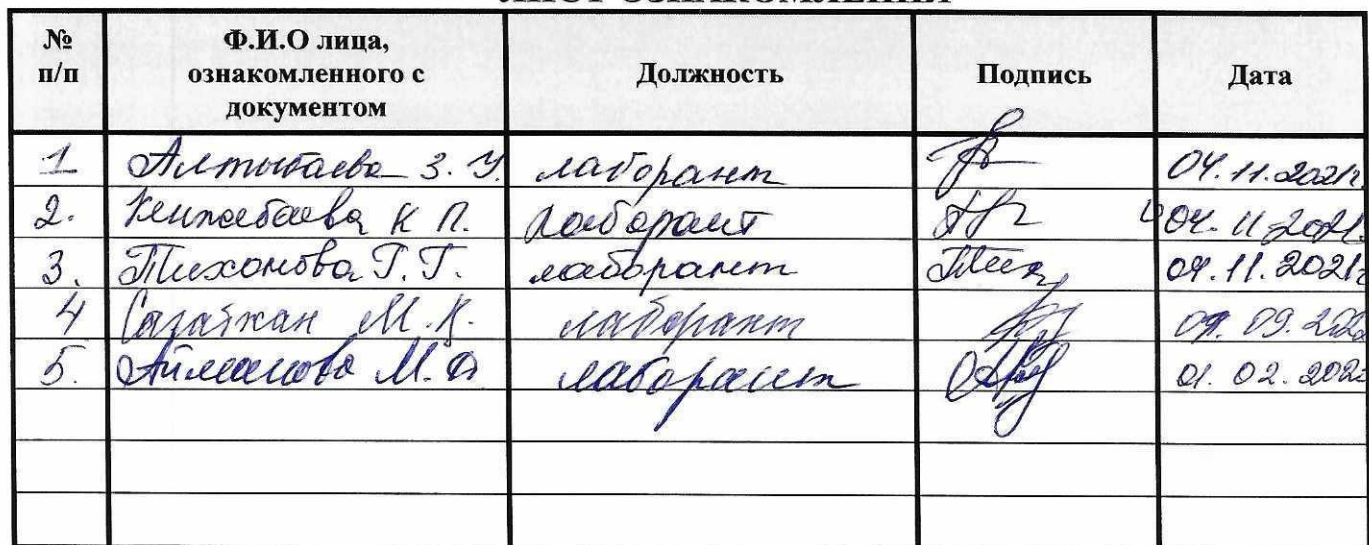 № п/п Ф.И.О лица, ознакомленного с документом Должность Подпись Дата
1 Алтыбаева З. У. лаборант 04.11.2021г
2. Кенжебаева К П. лаборант 04.11.2021.
3. Тихонова Г. Г. лаборант 04.11.2021г
4 Сагатжан М.К. лаборант 09.202
5. Айманова М.О лаборант 01.02.202